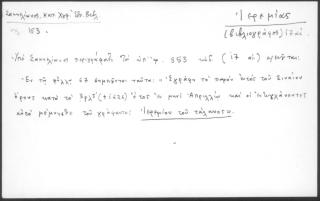 Σακκελίωνος, Κατ. Χειρ. Ἐθν. Βιβλ.
153.
Ἱερεμίας
(βιβλιογράφος) 17 αἰ.
Ὑπὸ Σακκελίωνος περιγράφεται τὸ ὑπ' ἀρ. 853 κῶδ. (17 αἰ.)
Ἐν τῇ φύλλῳ 67 σημειοῦται ταῦτα: Ἐγράφη τὸ παρὸν ἐντὸς τοῦ Σιναίου
ὄρους κατὰ τὸ (1622) ἔτος ἐν μηνὶ Ἀπριλλίῳ καὶ οἱ ἐντυγχάνοντες
αὐτὸ μέμνησθε τοῦ γράψαντος Ἱερεμίου τοῦ τάλανος